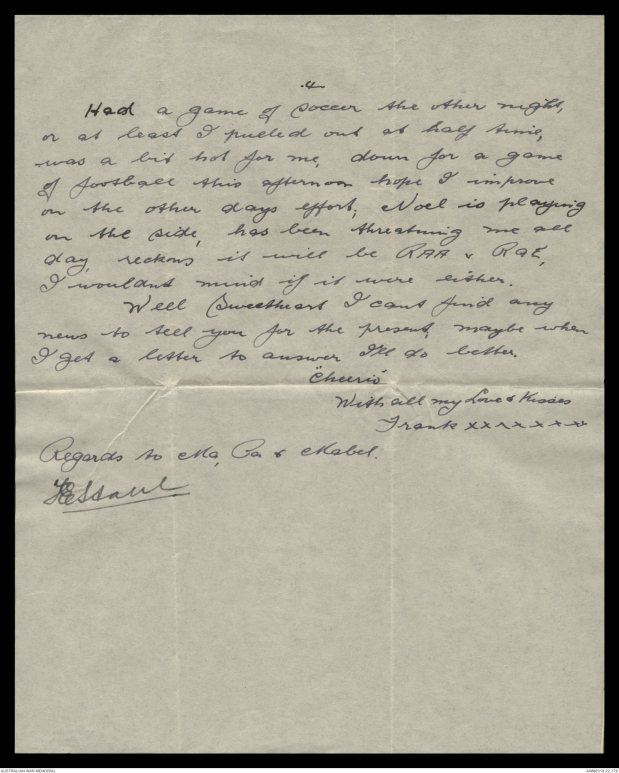 .4.
Had a game of soccer the other night,
or at least I pulled out at half time,
was a bit hot for me, down for a game
of football this afternoon hope I improve
on the other days effort, Noel is playing
on the side, has been threatning me all
day, reckons it will be RAA v RAE,
I wouldnt mind if it were either.
Well Sweetheart I cant find any
news to tell you for the present, maybe when
I get a letter to answer I'll do better.
"Cheerio"
With all my Love & Kisses
Frank xxxxxxx
Regards to Ma, Pa & Mabel.
AUSTRALIAN WAR MEMORIAL